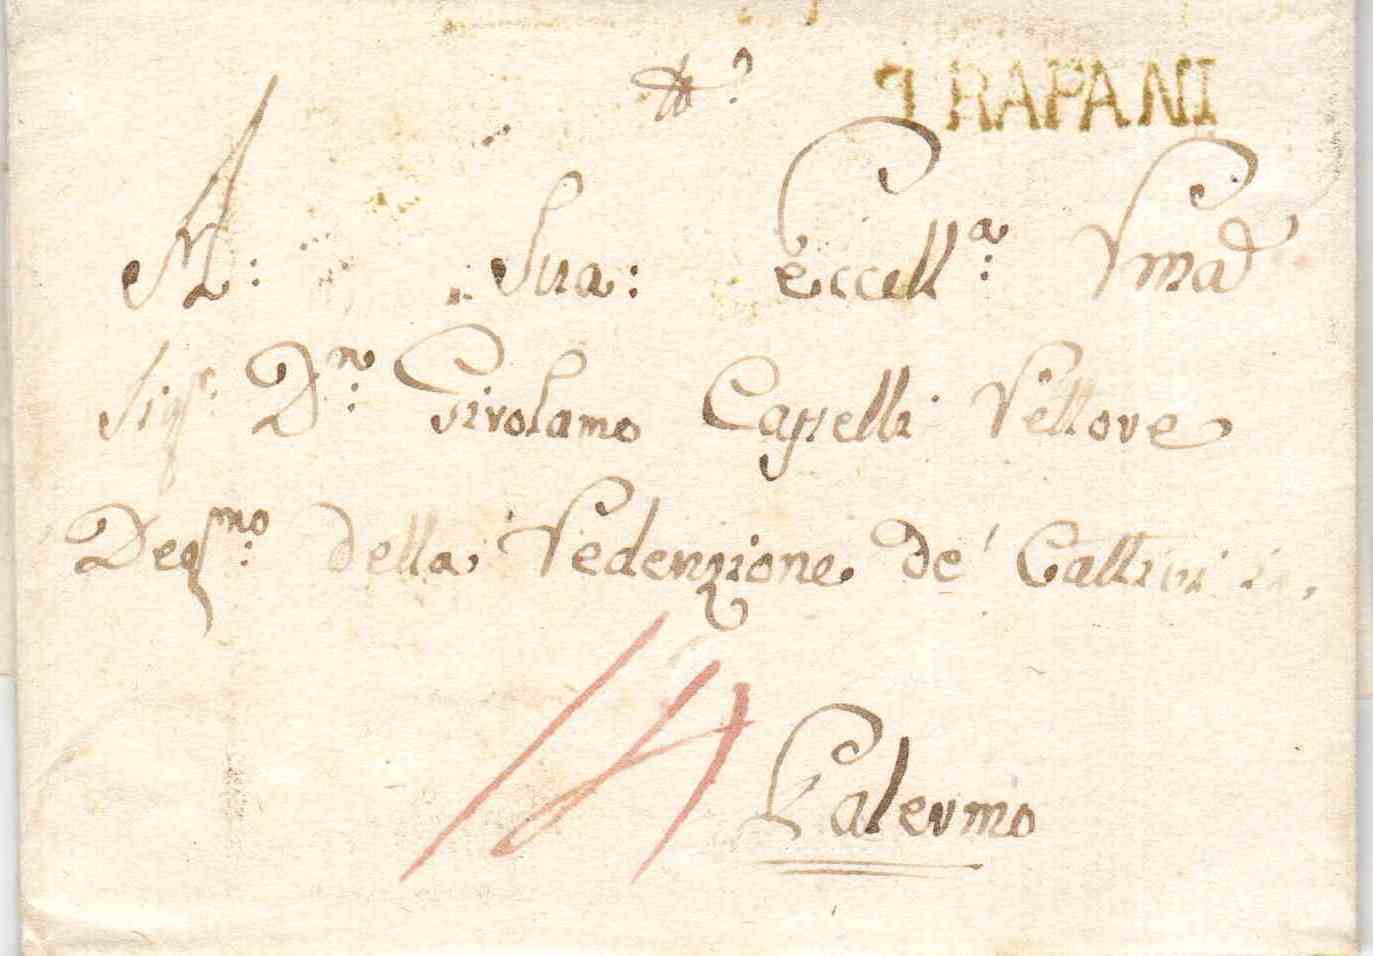 TRAPANI
A: Sua: Eccell.ª
Sig.r D.n Girolamo Capelli Rettore
Deg.mo della Redenzione de' Cattivi in
14 Palermo